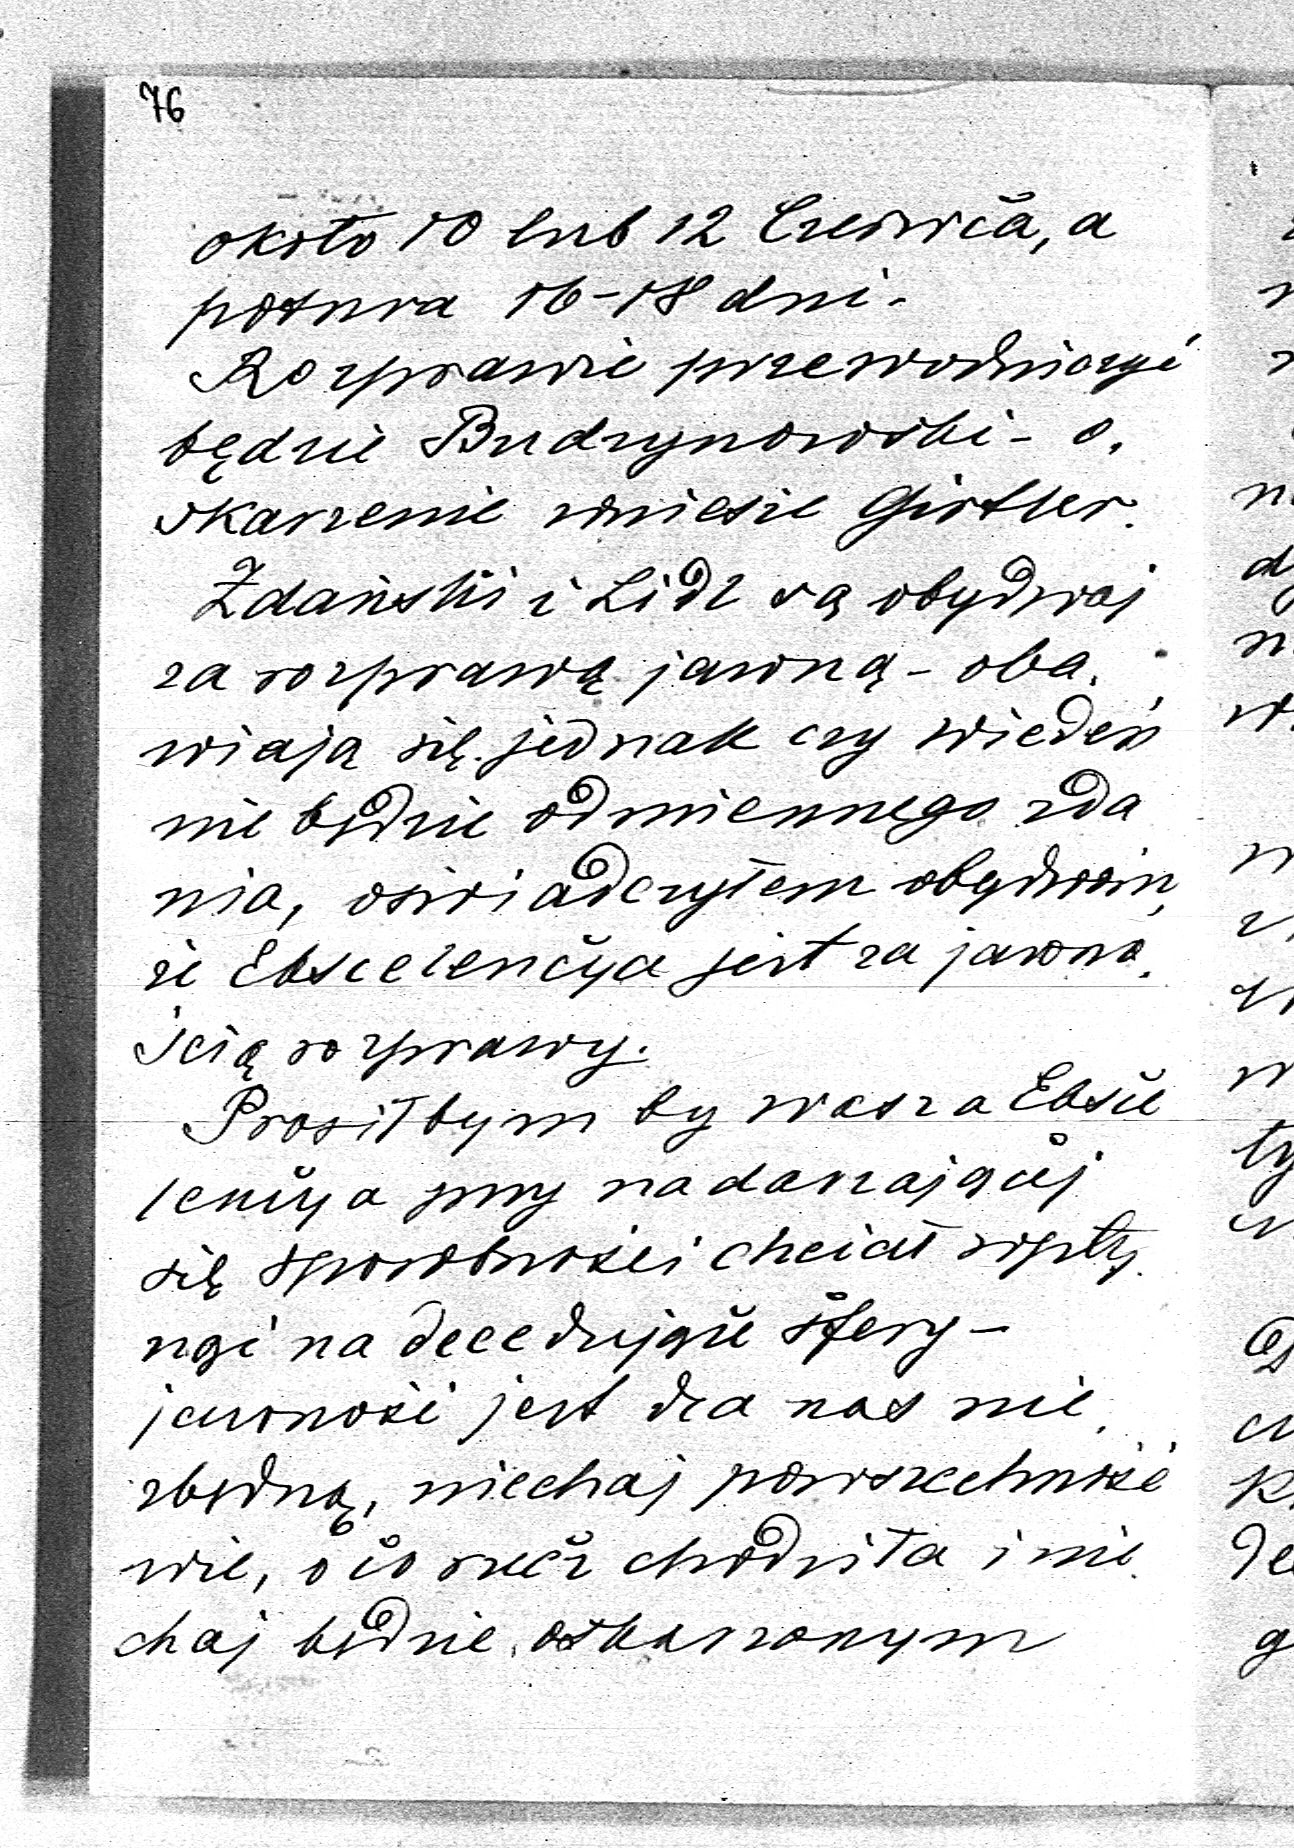 76
około 10 lub 12 Czerwca, a
potrwa 16-18 dni.
Rozprawie przewodniczyć
będzie Budzynowski - o.
skarzenie wniesie Girtler.
Zdański i Lidl są obydwaj
za rozprawą jawną - oba.
wiają się jednak czy wiedeń
nie będzie odmiennego zda
nia, oświadczyłem obydwóm,
że Ekscelencya jest za jawno.
ścią rozprawy.
Prosiłbym by wasza Eksce
lencya przy nadarzającej
się sposobności chciał wpły.
nąć na decedujące sfery -
jawność jest dla nas nie.
zbędną, niechaj powszechność
wie, o co rzecz chodziła i nie.
chaj będzie oskarzonym